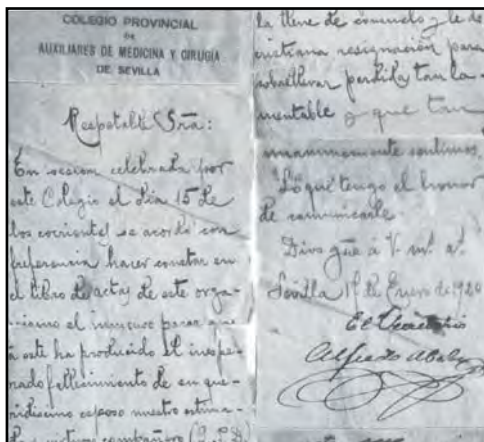 COLEGIO PROVINCIAL
DE
AUXILIARES DE MEDICINA Y CIRUGÍA
DE SEVILLA
Respetable Sra:
En sesion celebrada por
este Colegio el dia 15 de
los corrientes se acordó con
preferencia hacer constar en
el libro de actas de este orga-
nismo el inmenso pesar que
á este ha producido el inespe-
rado fallecimiento de su que-
ridisimo esposo nuestro estima-
do compañero (q.e.p.d.)
la llene de consuelo y le dé
cristiana resignación para
sobrellevar perdida tan la-
mentable y que tan
unanimemente sentimos.
Lo que tengo el honor
de comunicarle
Dios gûe á V. m.s a.s
Sevilla 17 de Enero de 1920
El Secretario
Alfredo